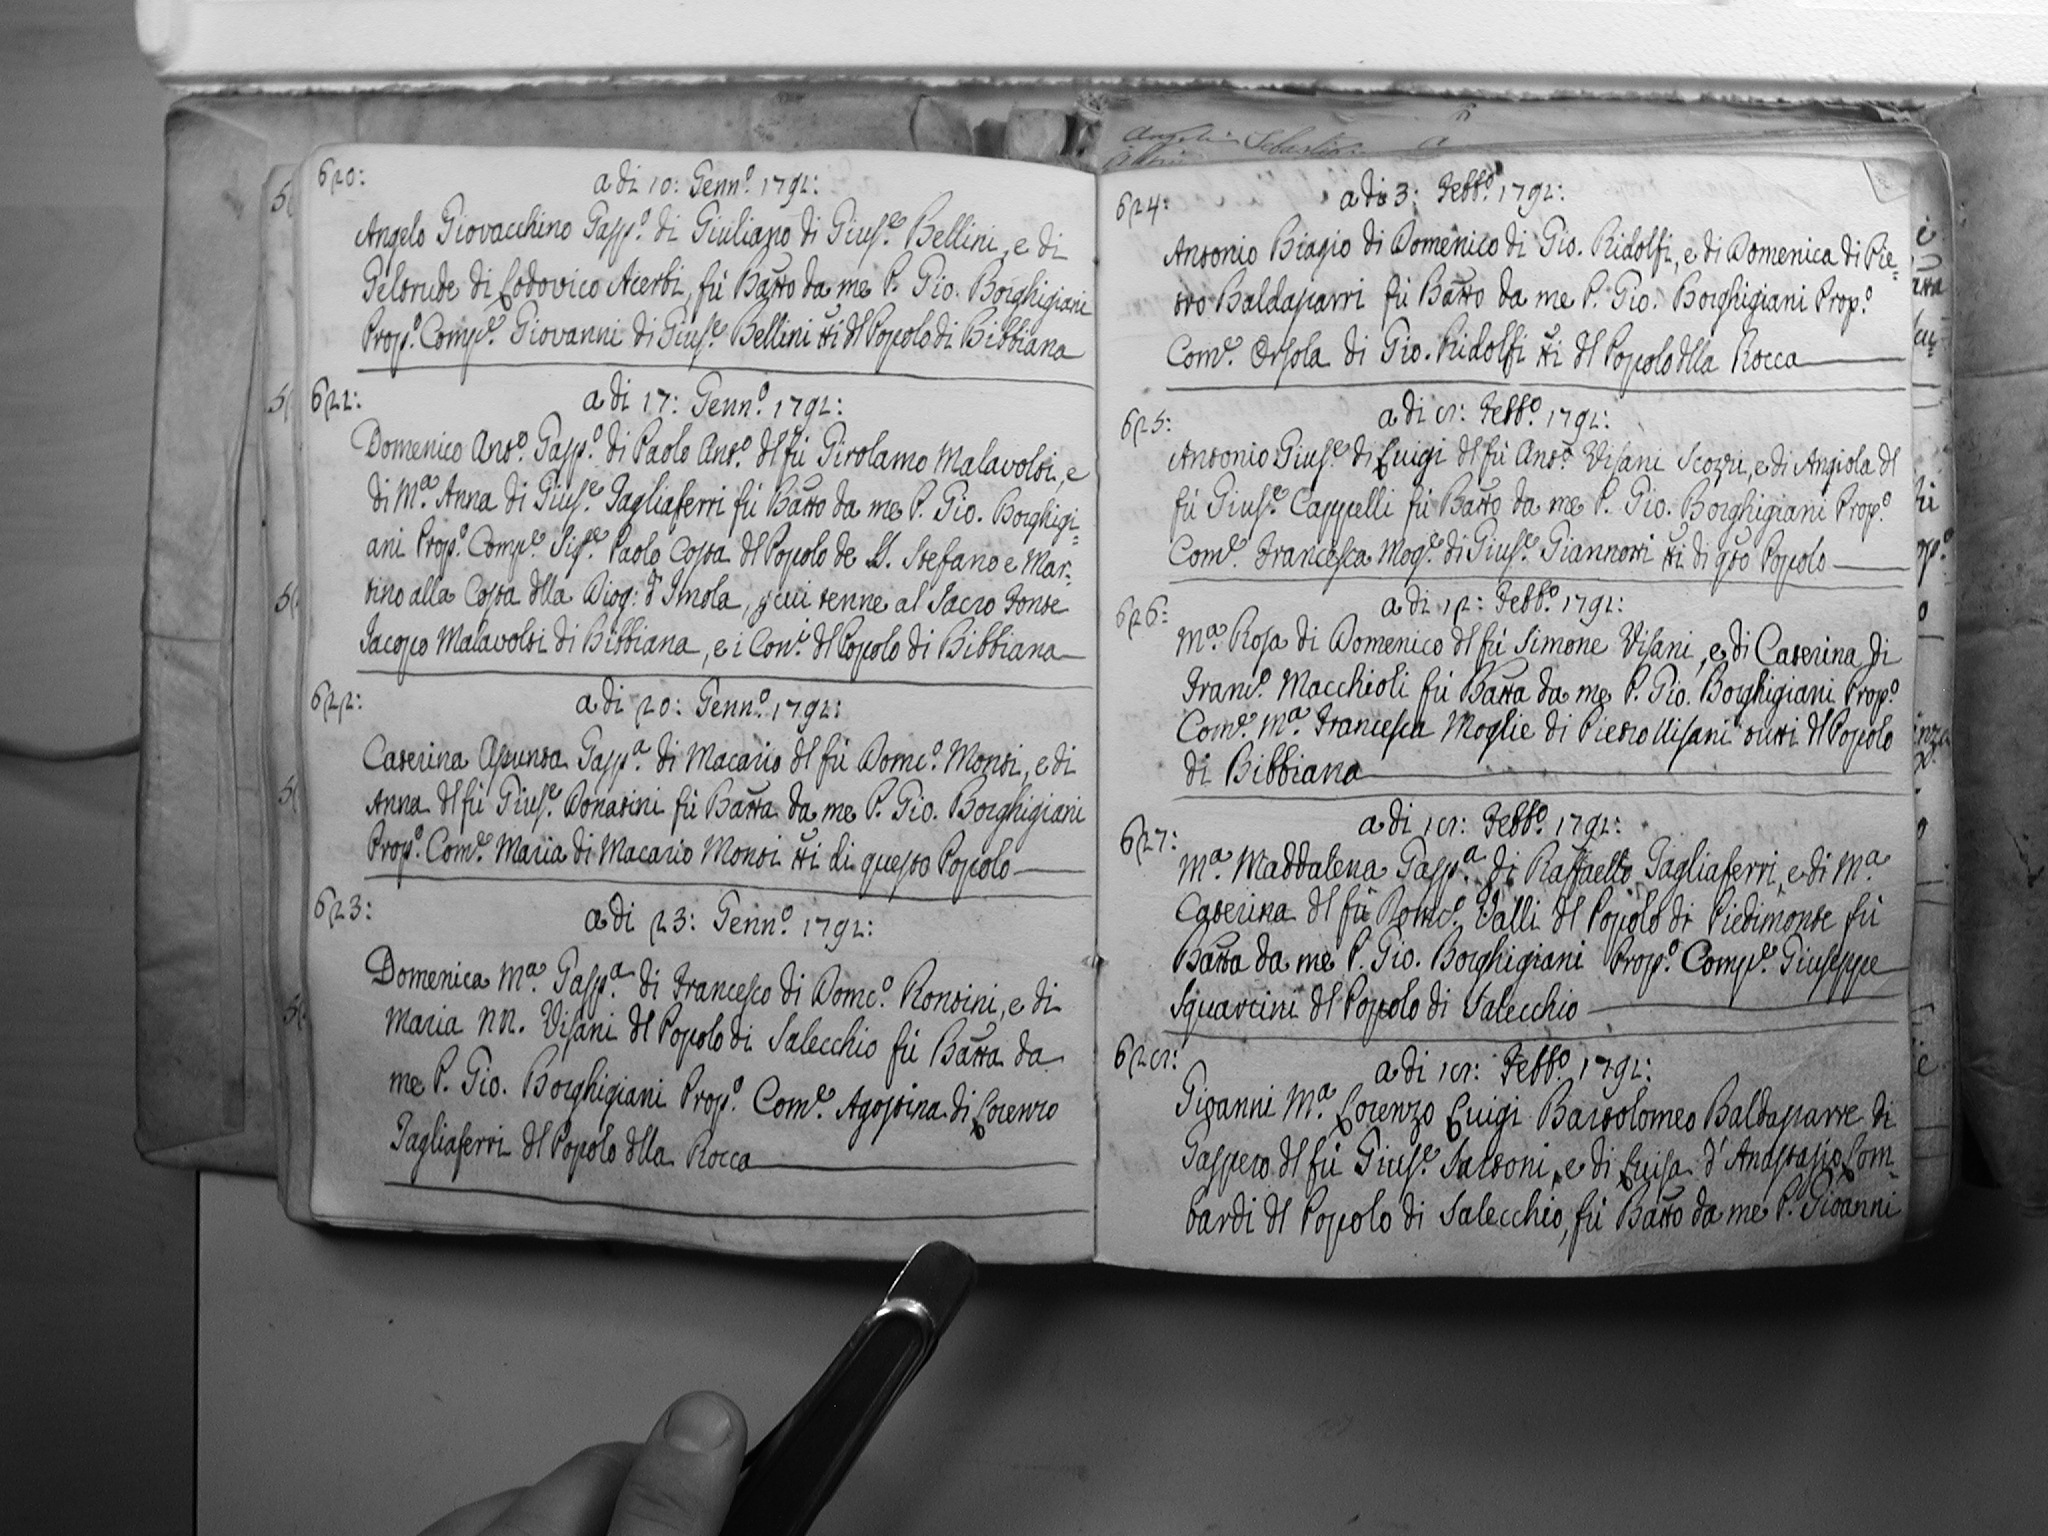 620:
a di 10: Genn.º 1791:
Angelo Giovacchino Gasp.º di Giuliano di Gius.e Bellini, e di
Geltrude di Lodovico Acerbi, fù Batto da me P. Gio. Borghigiani
Prop.º Comp.e Giovanni di Gius.e Bellini tti dl Popolo di Bibbiana
621:
a di 17: Genn.º 1791:
Domenico Ant.º Gasp.º di Paolo Ant.º dl fù Girolamo Malavolti, e
di M.a Anna di Gius.e Tagliaferri fù Batto da me P. Gio. Borghigi=
ani Prop.º Comp.e Sig.e Paolo Costa dl Popolo de S. Stefano e Mar=
tino alla Costa dlla Diog: d'Imola, p cui tenne al Sacro Fonte
Jacopo Malavolti di Bibbiana, e i Con.i dl Popolo di Bibbiana
622:
a di 20: Genn.º 1791:
Caterina Apunta Gasp.a di Macario dl fù Domc.º Monti, e di
Anna dl fù Gius.e Donatini fù Batta da me P. Gio. Borghigiani
Prop.º Com.e Maria di Macario Monti tti di questo Popolo
623:
a di 23: Genn.º 1791:
Domenica M.a Gasp.a di Francesco di Domc.º Rontini, e di
Maria NN. Visani dl Popolo di Salecchio fù Batta da
me P. Gio. Borghigiani Prop.º Com.e Agostina di Lorenzo
Tagliaferri dl Popolo dlla Rocca
Angelo Sebastia
624:
a di 3: Febb.º 1791:
Antonio Biagio di Domenico di Gio. Ridolfi, e di Domenica di Pie=
tro Baldaparri fù Batto da me P. Gio. Borghigiani Prop.º
Com.e Orsola di Gio. Ridolfi tti dl Popolo dlla Rocca
625:
a di 8: Febb.º 1791:
Antonio Gius.e di Luigi dl fù Ant.º Visani Scozzi, e di Angiola dl
fù Gius.e Cappelli fù Batto da me P. Gio. Borghigiani Prop.º
Com.e Francesca Mog.e di Gius.e Giannotti tti di qto Popolo
626:
a di 12: Febb.º 1791:
M.a Rosa di Domenico dl fù Simone Visani, e di Caterina di
Franc.º Macchioli fù Batta da me P. Gio. Borghigiani Prop.º
Com.e M.a Francesca Moglie di Pietro Visani tutti dl Popolo
di Bibbiana
627:
a di 18: Febb.º 1791:
M.a Maddalena Gasp.a di Raffaello Tagliaferri, e di M.a
Caterina dl fù Domc.º Valli dl Popolo di Piedimonte fù
Batta da me P. Gio. Borghigiani Prop.º Comp.e Giuseppe
Squarcini dl Popolo di Salecchio
628:
a di 18: Febb.º 1791:
Gioanni M.a Lorenzo Luigi Bartolomeo Baldaparre di
Gaspero dl fù Gius.e Sartoni, e di Luisa d'Anastasio Lom=
bardi dl Popolo di Salecchio, fù Batto da me P. Gioanni